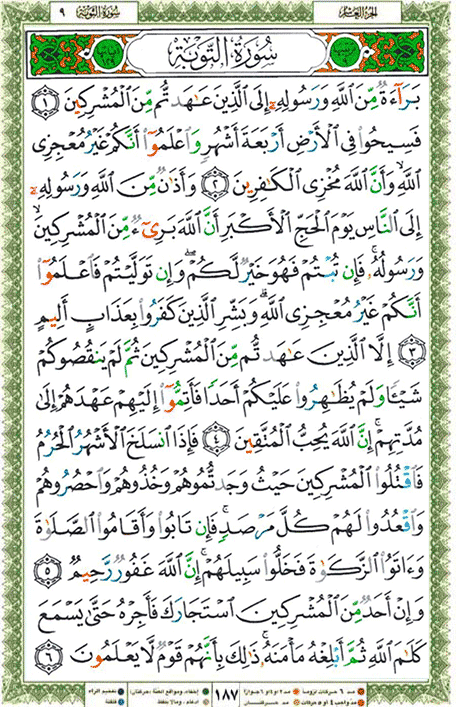 سُورَةُ التَّوْبَةِ ٩
الجُزْءُ العَاشِرُ
سُورَةُ التَّوْبَةِ
بَرَآءَةٌ مِّنَ ٱللَّهِ وَرَسُولِهِۦٓ إِلَى ٱلَّذِينَ عَٰهَدتُّم مِّنَ ٱلْمُشْرِكِينَ ١
فَسِيحُوا۟ فِى ٱلْأَرْضِ أَرْبَعَةَ أَشْهُرٍ وَٱعْلَمُوٓا۟ أَنَّكُمْ غَيْرُ مُعْجِزِى
ٱللَّهِ ۙ وَأَنَّ ٱللَّهَ مُخْزِى ٱلْكَٰفِرِينَ ٢ وَأَذَٰنٌ مِّنَ ٱللَّهِ وَرَسُولِهِۦٓ
إِلَى ٱلنَّاسِ يَوْمَ ٱلْحَجِّ ٱلْأَكْبَرِ أَنَّ ٱللَّهَ بَرِىٓءٌ مِّنَ ٱلْمُشْرِكِينَ ۙ
وَرَسُولُهُۥ ۚ فَإِن تُبْتُمْ فَهُوَ خَيْرٌ لَّكُمْ ۖ وَإِن تَوَلَّيْتُمْ فَٱعْلَمُوٓا۟
أَنَّكُمْ غَيْرُ مُعْجِزِى ٱللَّهِ ۗ وَبَشِّرِ ٱلَّذِينَ كَفَرُوا۟ بِعَذَابٍ أَلِيمٍ
٣ إِلَّا ٱلَّذِينَ عَٰهَدتُّم مِّنَ ٱلْمُشْرِكِينَ ثُمَّ لَمْ يَنقُصُوكُمْ
شَيْـًٔا وَلَمْ يُظَٰهِرُوا۟ عَلَيْكُمْ أَحَدًا فَأَتِمُّوٓا۟ إِلَيْهِمْ عَهْدَهُمْ إِلَىٰ
مُدَّتِهِمْ ۚ إِنَّ ٱللَّهَ يُحِبُّ ٱلْمُتَّقِينَ ٤ فَإِذَا ٱنسَلَخَ ٱلْأَشْهُرُ ٱلْحُرُمُ
فَٱقْتُلُوا۟ ٱلْمُشْرِكِينَ حَيْثُ وَجَدتُّمُوهُمْ وَخُذُوهُمْ وَٱحْصُرُوهُمْ
وَٱقْعُدُوا۟ لَهُمْ كُلَّ مَرْصَدٍ ۚ فَإِن تَابُوا۟ وَأَقَامُوا۟ ٱلصَّلَوٰةَ
وَءَاتَوُا۟ ٱلزَّكَوٰةَ فَخَلُّوا۟ سَبِيلَهُمْ ۚ إِنَّ ٱللَّهَ غَفُورٌ رَّحِيمٌ ٥
وَإِنْ أَحَدٌ مِّنَ ٱلْمُشْرِكِينَ ٱسْتَجَارَكَ فَأَجِرْهُ حَتَّىٰ يَسْمَعَ
كَلَٰمَ ٱللَّهِ ثُمَّ أَبْلِغْهُ مَأْمَنَهُۥ ۚ ذَٰلِكَ بِأَنَّهُمْ قَوْمٌ لَّا يَعْلَمُونَ ٦
١٨٧